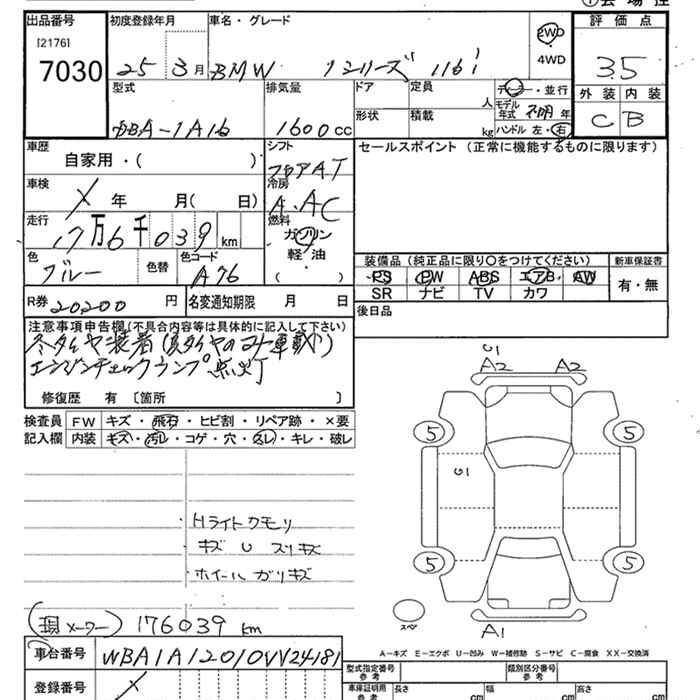 出品番号 初度登録年月 車名・グレード 評価点
[2176]
7030 25 3月 BMW 1シリーズ 116i 2WD 4WD 3.5
型式 排気量 ドア 定員 人 ディーラー・並行 外装 内装
形状 積載 kg モデル年式 不明 年
DBA-1A16 1600cc ハンドル 左・右 C B
車歴 シフト セールスポイント (正常に機能するものに限ります)
自家用・( ) フロアAT
車検 冷房
X 年 月( 日) A.AC
走行 燃料
17万6千039km ガソリン
色 色替 色コード 軽・油 装備品(純正品に限り○をつけてください) 新車保証書
ブルー A76 ( ) PS PW ABS エアB AW 有・無
SR ナビ TV カワ
R券 20200 円 名変通知期限 月 日 後日品
注意事項申告欄(不具合内容等は具体的に記入して下さい)
冬タイヤ装着(夏タイヤのコト車載)
エンジンチェックランプ点灯
修復歴 有〔箇所 〕
検査員 FW キズ・飛石・ヒビ割・リペア跡・×要
記入欄 内装 キズ・汚レ・コゲ・穴・スレ・キレ・破レ
G1
A2 A2
5 5
G1
・Hライトクモリ
・キズ U スリキズ
・ホイールガリキズ
5 5
スペア
A1
(現メーター) 176039 km
A-キズ E-エクボ U-凹み W-補修跡 S-サビ C-腐食 XX-交換済
車台番号 WBA1A12010VV24181
型式指定番号 参考 類別区分番号 参考
登録番号 X
車庫証明用 参考 長さ cm 幅 cm 高さ cm